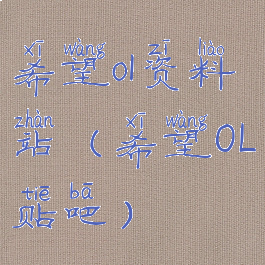 xī wàng zī liào
希望ol资料
zhàn xī wàng
站（希望OL
tiē bā
贴吧）